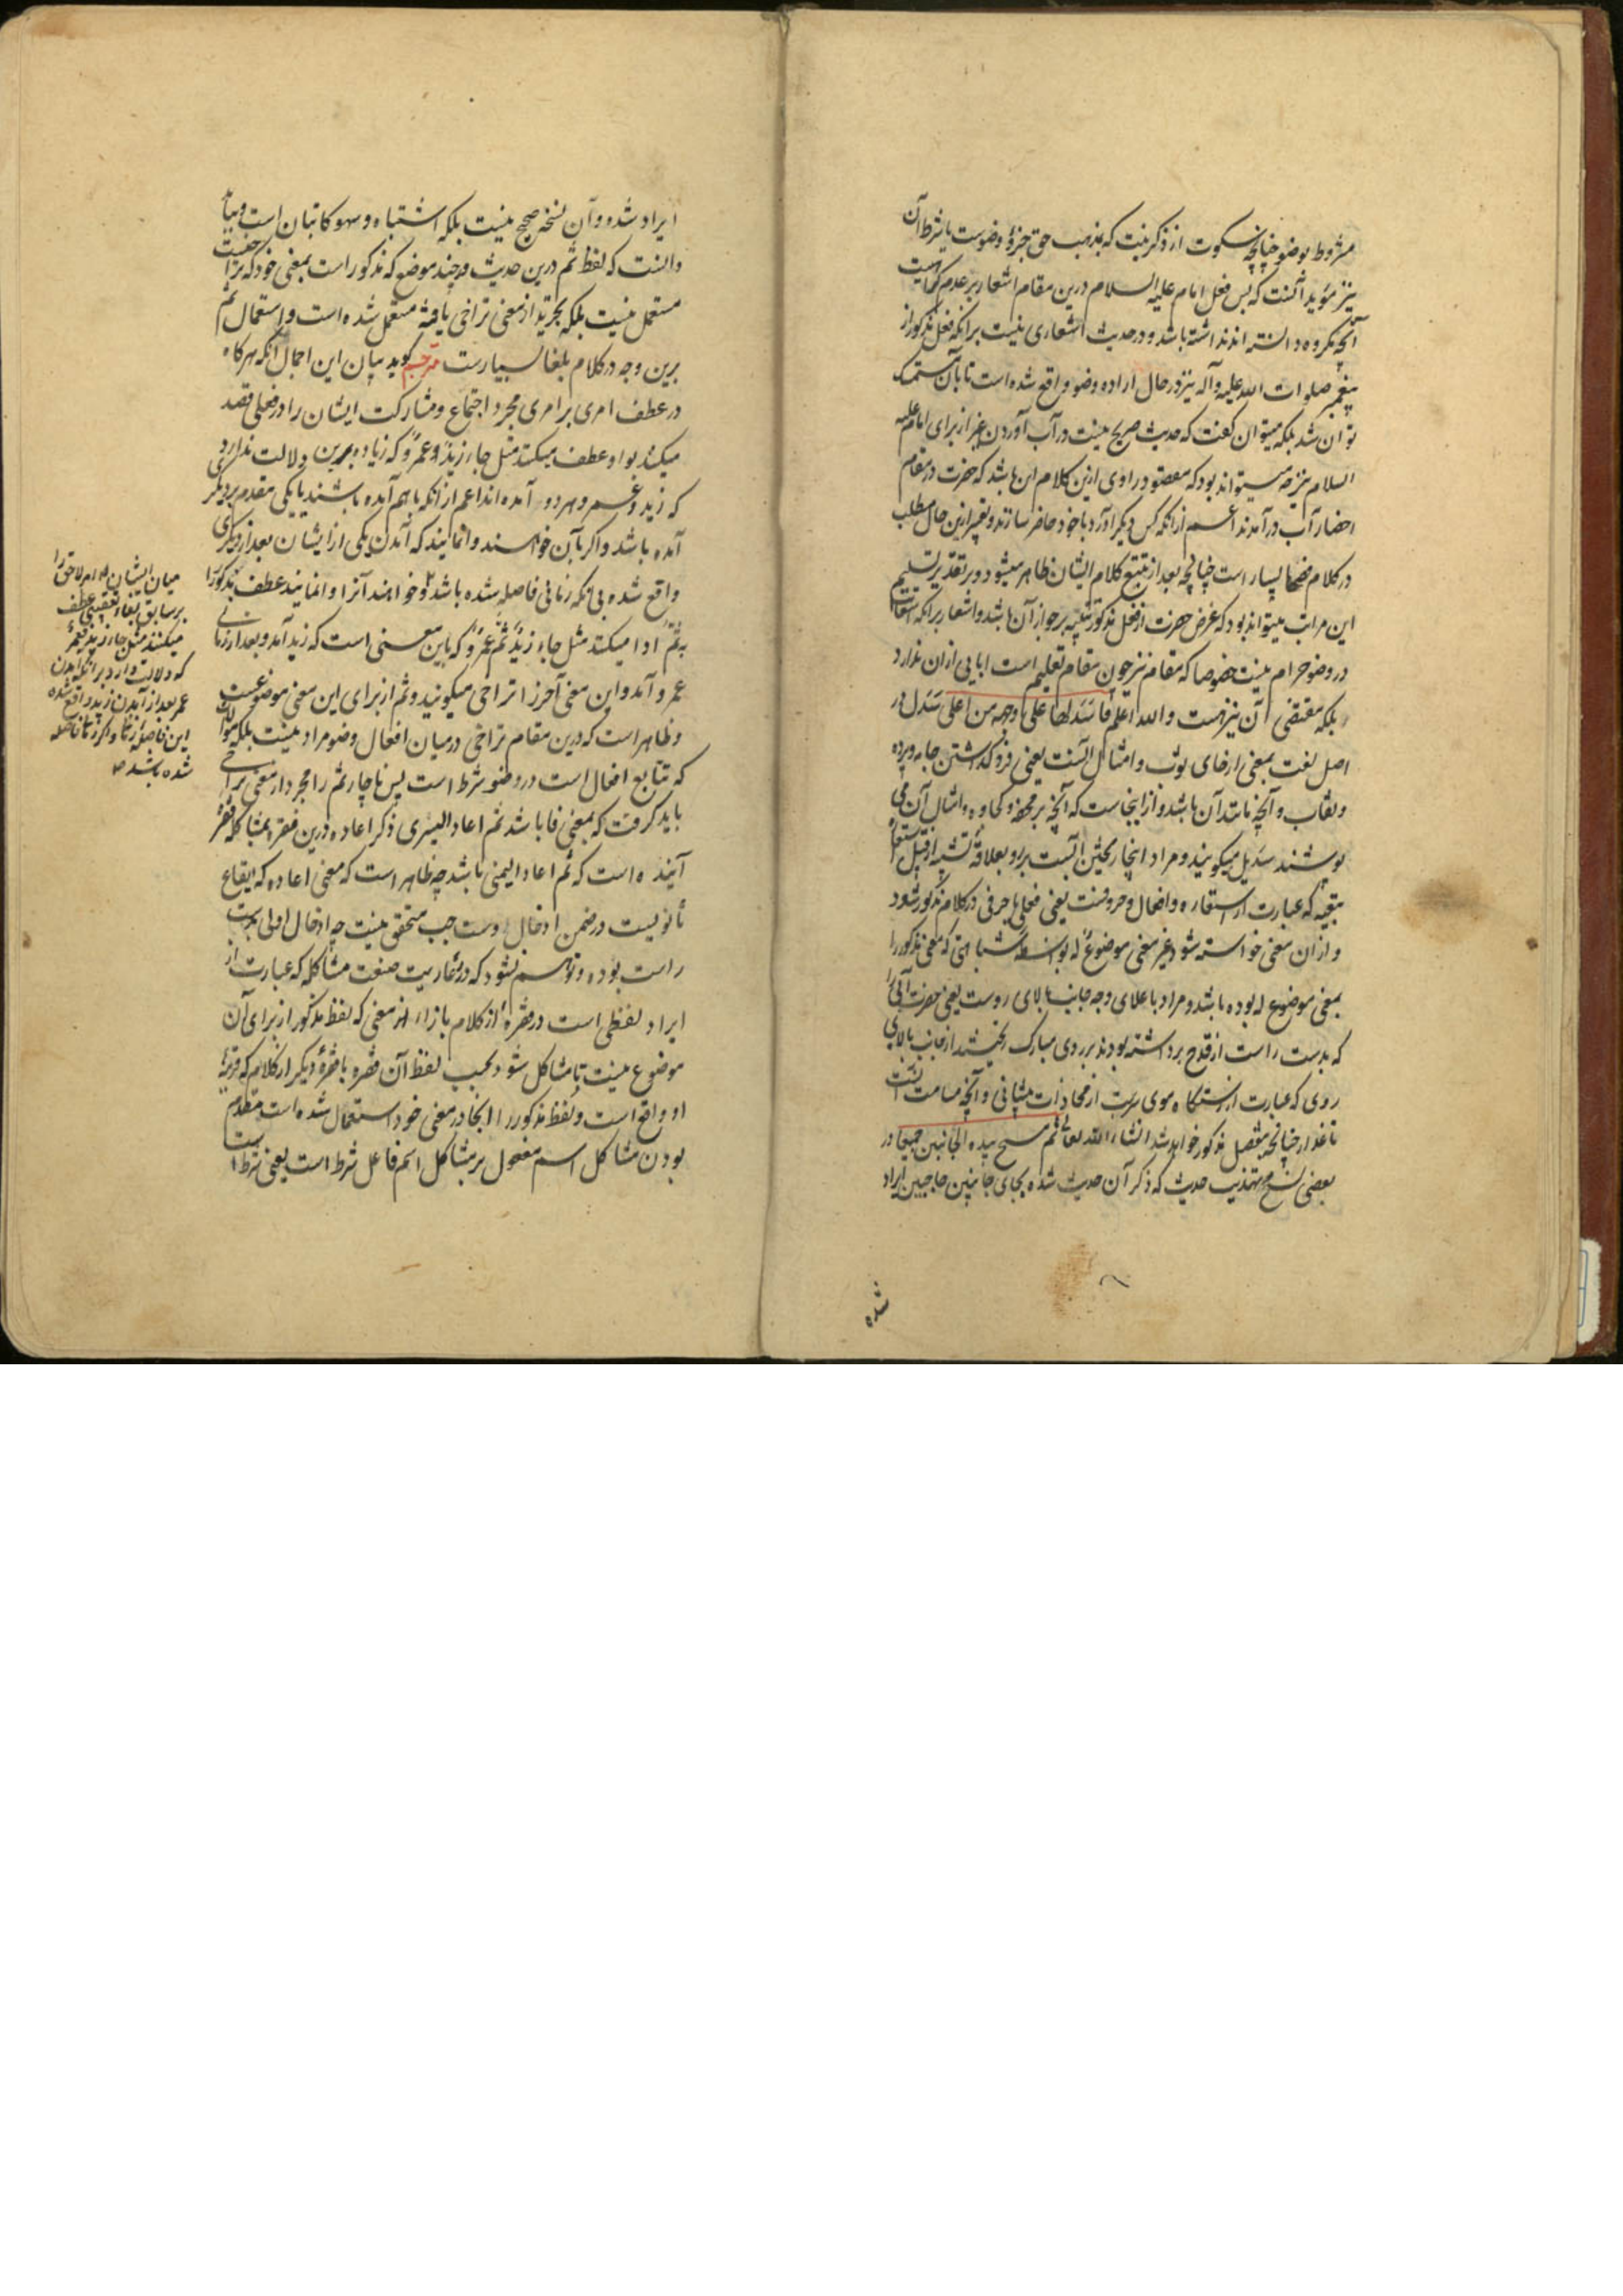 مشروط بوضو چنانچه سکوت از ذکر نیت که بمذهب حق جزؤ وضوست یا شرط آن
نیز مؤید آنست که پس فعل امام علیه السلام درین مقام اشعار بر عدم کراهیت
آنچه مکروه دانسته اند نداشته باشد و در حدیث اشعاری نیست بر آنکه فعل مذکور از
پیغمبر صلوات الله علیه و آله نیز در حال اراده وضو واقع شده است تا بآن متمسک
توان شد بلکه میتوان گفت که حدیث صریح نیست در آب آوردن غیر از برای امام علیه
السلام نیز چه میتواند بود که مقصود راوی ازین کلام این باشد که حضرت در مقام
احضار آب در آمدند اعم از آنکه کس دیگر آورد یا خود حاضر سازند و تعبیر ازین حال مطلب
در کلام فصحا بسیار است چنانچه بعد از تتبع کلام ایشان ظاهر میشود و بر تقدیر تسلیم
این مراتب میتواند بود که غرض حضرت از فعل مذکور تنبیه بر جواز آن باشد و اشعار بر آنکه استعانت
در وضو حرام نیست خصوصا که مقام نیز چون مقام تعلیم است ابایی از آن ندارد
بلکه مقتضی آن نیز هست و الله اعلم فاسدلها علی وجهه من اعلی سدل در
اصل لغت بمعنی ارخای ثوب و امثال آنست یعنی فرو گذاشتن جامه و پرده
و نقاب و آنچه مانند آن باشد و از اینجاست که آنچه بر محفه و کجاوه و امثال آن می
پوشند سدیل میگویند و مراد اینجا ریختن آبست برو بعلاقه تشبیه از قبیل استعاره
تبعیه که عبارت از استعاره و افعال و حروفست یعنی فعلی یا حرفی در کلام مذکور شود
و از آن معنی خواسته شود غیر معنی موضوع له بواسطه شباهتی که معنی مذکور را
بمعنی موضوع له بوده باشد و مراد باعلای وجه جانب بالای روست یعنی حضرت آبی را
که بدست راست از قدح برداشته بودند بر روی مبارک ریختند از جانب بالای
روی که عبارت از رستنگاه موی سر است از محاذات پیشانی و آنچه مسامت آنست
تا عذار چنانچه مفصل مذکور خواهد شد انشاء الله تعالی ثم مسح بیده الجانبین جمیعا در
بعضی نسخ تهذیب حدیث که ذکر آن حدیث شده بجای جانبین حاجبین ایراد
شده
ایراد شده و آن نسخه صحیح نیست بلکه اشتباه و سهو کاتبان است و بباید
دانست که لفظ ثم درین حدیث در چند موضع که مذکور است بمعنی خود که تراخیست
مستعمل نیست بلکه بتجرید از معنی تراخی یافته مستعمل شده است و استعمال ثم
برین وجه در کلام بلغا بسیارست مترجم گوید بیان این اجمال آنکه هرگاه
در عطف امری بر امری مجرد اجتماع و مشارکت ایشان را در فعلی قصد
میکنند بواو عطف میکنند مثل جاء زید و عمرو که زیاده برین دلالت ندارد
که زید و عمرو هر دو آمده اند اعم از آنکه باهم آمده باشند یا یکی مقدم بر دیگری
آمده باشد و اگر با آن خواهند وانمایند که آمدن یکی از ایشان بعد از دیگری
واقع شده بی آنکه زمانی فاصله شده باشد و خواهند آنرا وانمایند عطف مذکور را
بثم ادا میکنند مثل جاء زید ثم عمرو که باین معنی است که زید آمد و بعد از زمانی
عمرو آمد و این معنی آخر را تراخی میگویند و ثم از برای این معنی موضوعست
و ظاهر است که درین مقام تراخی در میان افعال وضو مراد نیست بلکه موالات
که تتابع افعال است در وضو شرط است پس ناچار ثم را مجرد از معنی تراخی
باید گرفت که بمعنی فا باشد ثم اعاد الیسری ذکر اعاده درین فقره بمشاکله فقره
آینده است که ثم اعاد الیمنی باشد چه ظاهر است که معنی اعاده که ایقاع
ثانویست در ضمن ادخال دست چپ متحقق نیست چه ادخال اولی بدست
راست بوده و توهم نشود که در رعایت صنعت مشاکله که عبارت از
ایراد لفظی است در فقره از کلام بازاء معنی که لفظ مذکور از برای آن
موضوع نیست تا مشاکل شود بحسب لفظ آن فقره با فقره دیگر از کلام که قرینه
او واقع است و لفظ مذکور در آنجا در معنی خود استعمال شده است مقدم
بودن مشاکل اسم مفعول بر مشاکل اسم فاعل شرط است یعنی شرط است
میان ایشان امر لاحق را
بر سابق بفاء تعقیبی عطف
میکنند مثل جاء زید فعمرو
که دلالت دارد بر آنکه آمدن
عمرو بعد از آمدن زید واقع شده
این فاصله زمانی و اگر زمانی فاصله
شده باشد